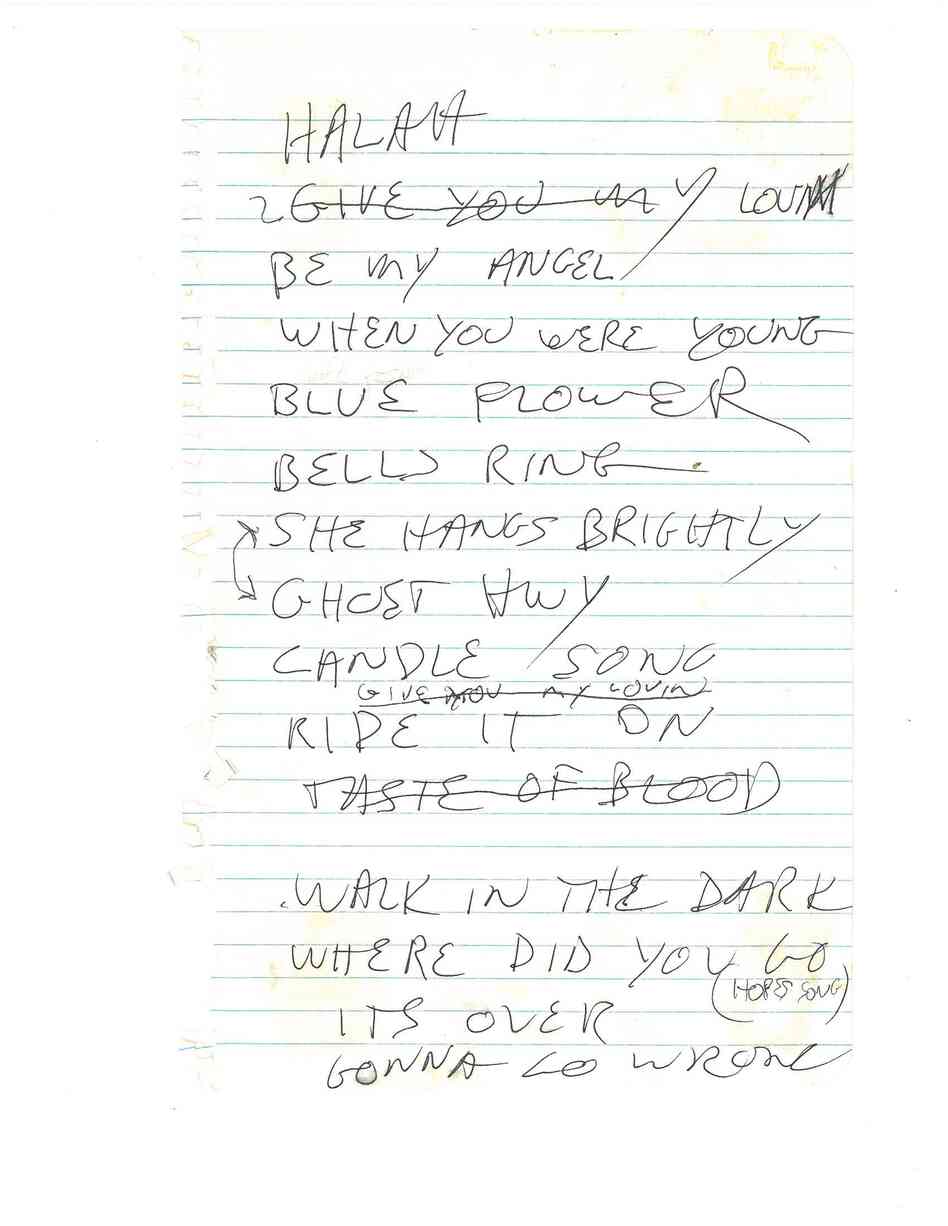 HALAH
2 GIVE YOU MY LOVIN
BE MY ANGEL
WHEN YOU WERE YOUNG
BLUE FLOWER
BELLS RING
SHE HANGS BRIGHTLY
GHOST HWY
CANDLE SONG
GIVE YOU MY LOVIN
RIDE IT ON
TASTE OF BLOOD
WALK IN THE DARK
WHERE DID YOU GO
(HOPES SONG)
ITS OVER
GONNA GO WRONG